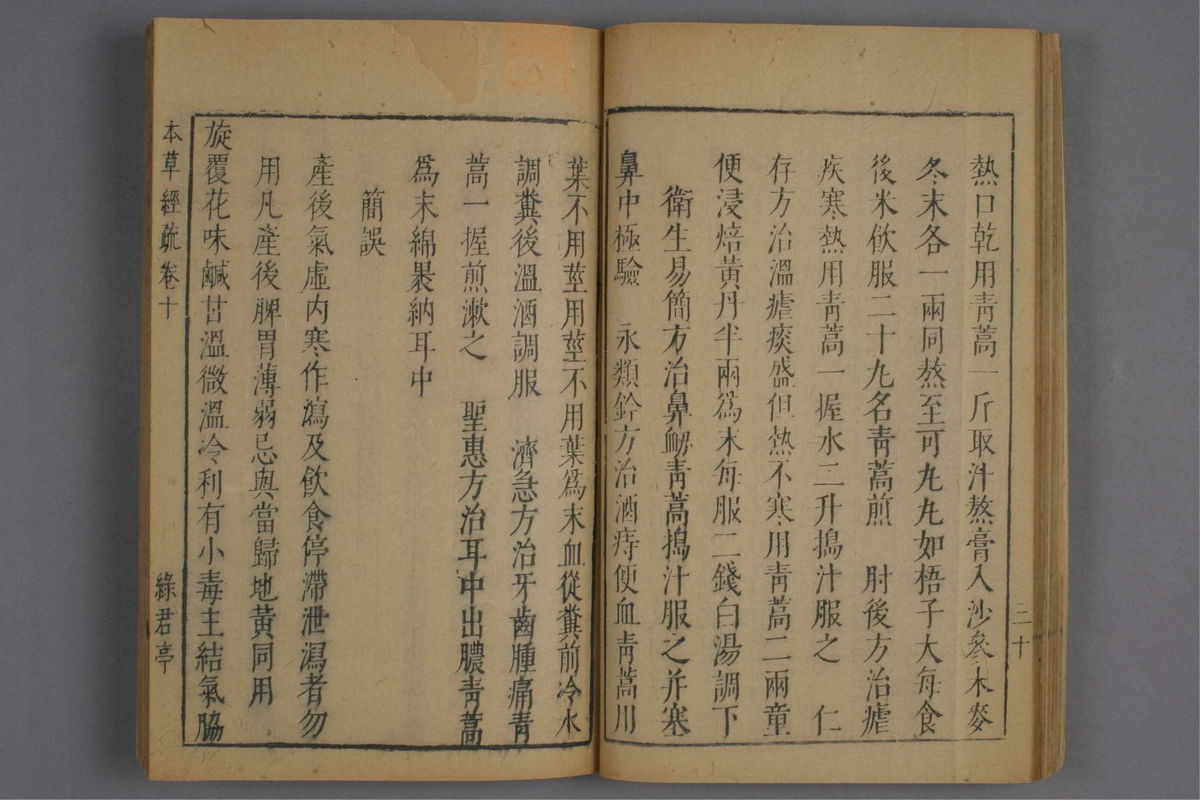 熱口乾用靑蒿一斤取汁熬膏入沙參末麥
冬末各一兩同熬至可丸丸如梧子大每食
後米飲服二十丸名靑蒿煎　肘後方治瘧
疾寒熱用靑蒿一握水二升搗汁服之　仁
存方治溫瘧痰盛但熱不寒用靑蒿二兩童
便浸焙黃丹半兩爲末每服二錢白湯調下
衛生易簡方治鼻衂靑蒿搗汁服之并塞
鼻中極驗　永類鈐方治酒痔便血靑蒿用
二十
葉不用莖用莖不用葉爲末血從糞前冷水
調糞後溫酒調服　濟急方治牙齒腫痛靑
蒿一握煎漱之　聖惠方治耳中出膿靑蒿
爲末綿褁納耳中
簡誤
產後氣虛内寒作瀉及飲食停滯泄瀉者勿
用凡產後脾胃薄弱忌與當歸地黃同用
旋覆花味鹹甘溫微溫冷利有小毒主結氣脇
本草經疏卷十
綠君亭